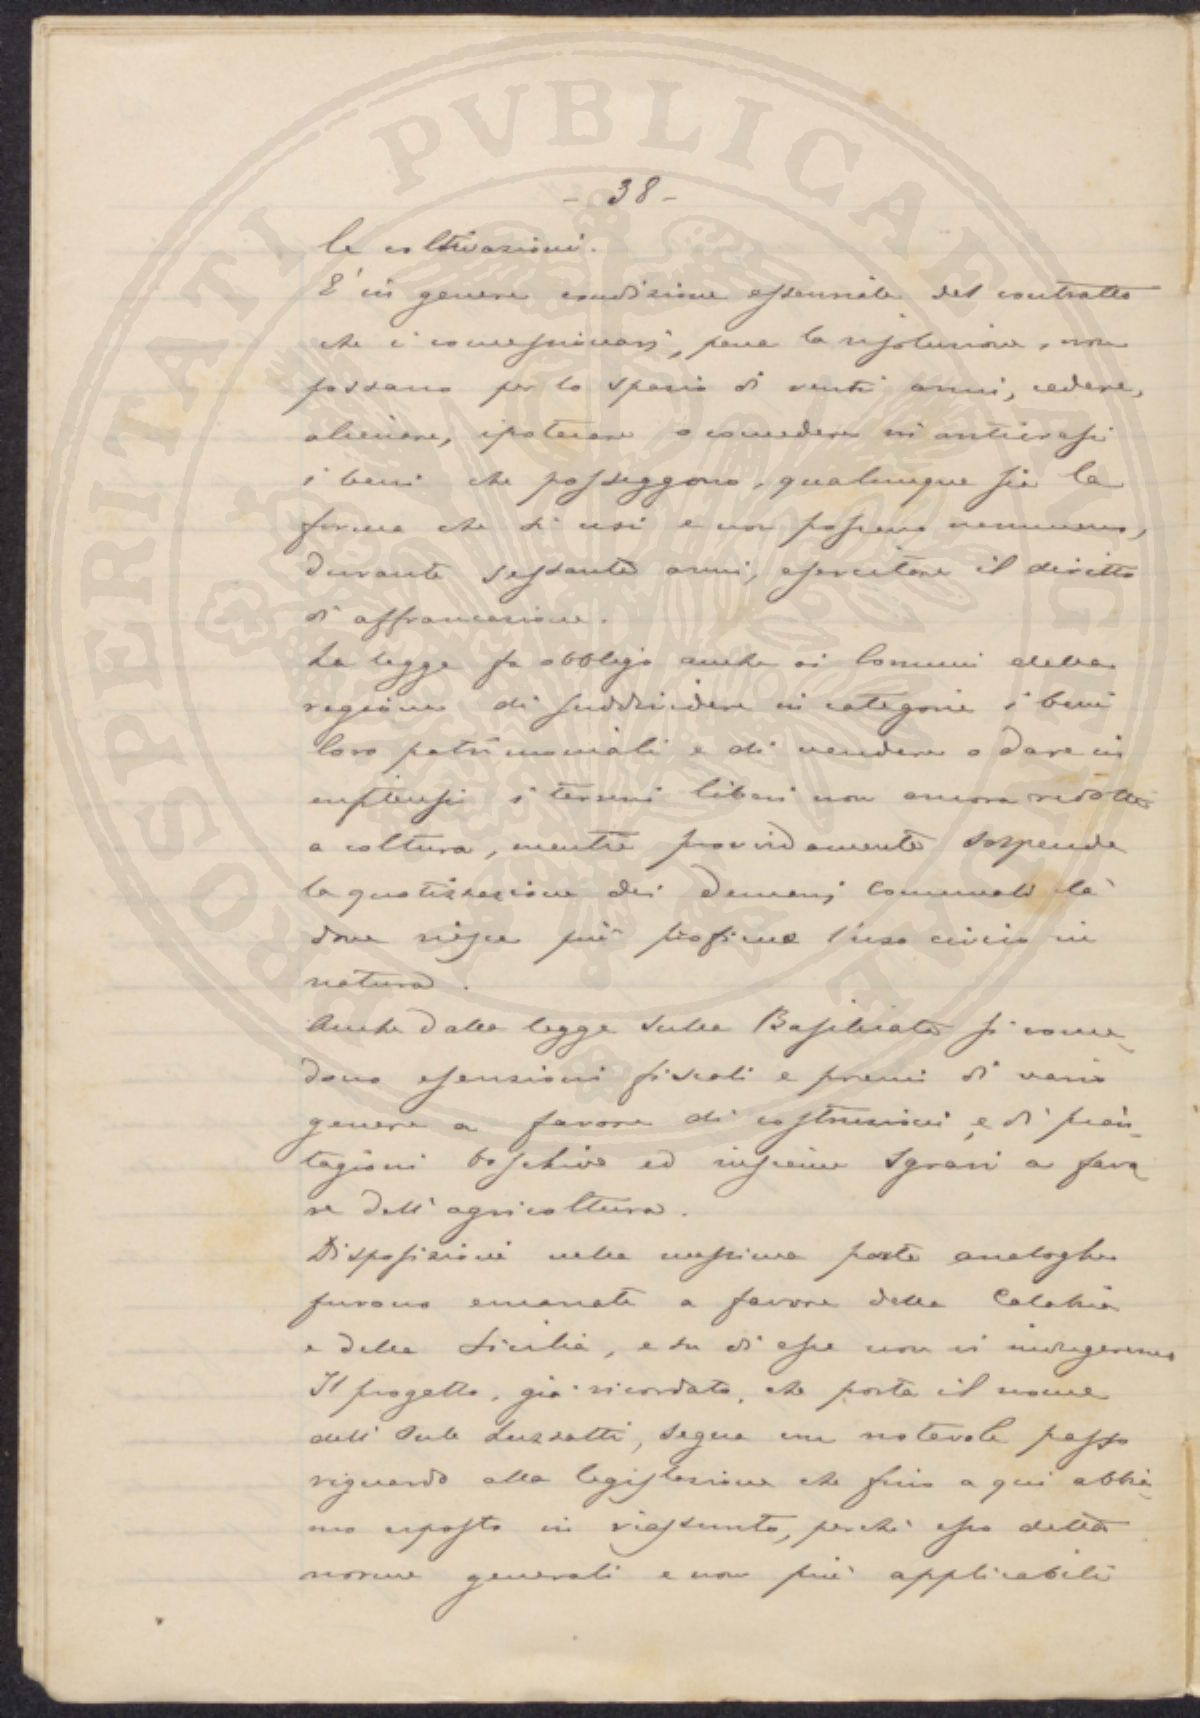 - 38 -
le coltivazioni.
E' in genere condizione essenziale del contratto
che i concessionarj, pena la risoluzione, non
possano per lo spazio di venti anni, cedere,
alienare, ipotecare o concedere in anticresi
i beni che posseggono, qualunque sia la
forma che si usi e non possono nemmeno,
durante sessanta anni, esercitare il diritto
di affrancazione.
La legge fa obbligo anche ai Comuni della
regione di suddividere in categorie i beni
loro patrimoniali e di vendere o dare in
enfiteusi i terreni liberi non ancora ridotti
a coltura, mentre provvidamente sospende
la quotizzazione dei demanj Comunali là
dove riesce più proficuo l'uso civico in
natura.
Anche dalla legge sulla Basilicata si conce-
dono esenzioni fiscali e premi di vario
genere a favore di costruzioni e di pian-
tagioni boschive ed insieme sgravi a favo
re dell'agricoltura.
Disposizioni nella massima parte analoghe
furono emanate a favore della Calabria
e della Sicilia, e su di esse non ci indugeremo
Il progetto, già ricordato, che porta il nome
dell' Luzzatti, segna un notevole passo
riguardo alla legislazione che fino a qui abbia-
mo esposto in riassunto, perchè esso detta
norme generali e non più applicabili
PROSPERITATI PVBLICAE AVGENDAE